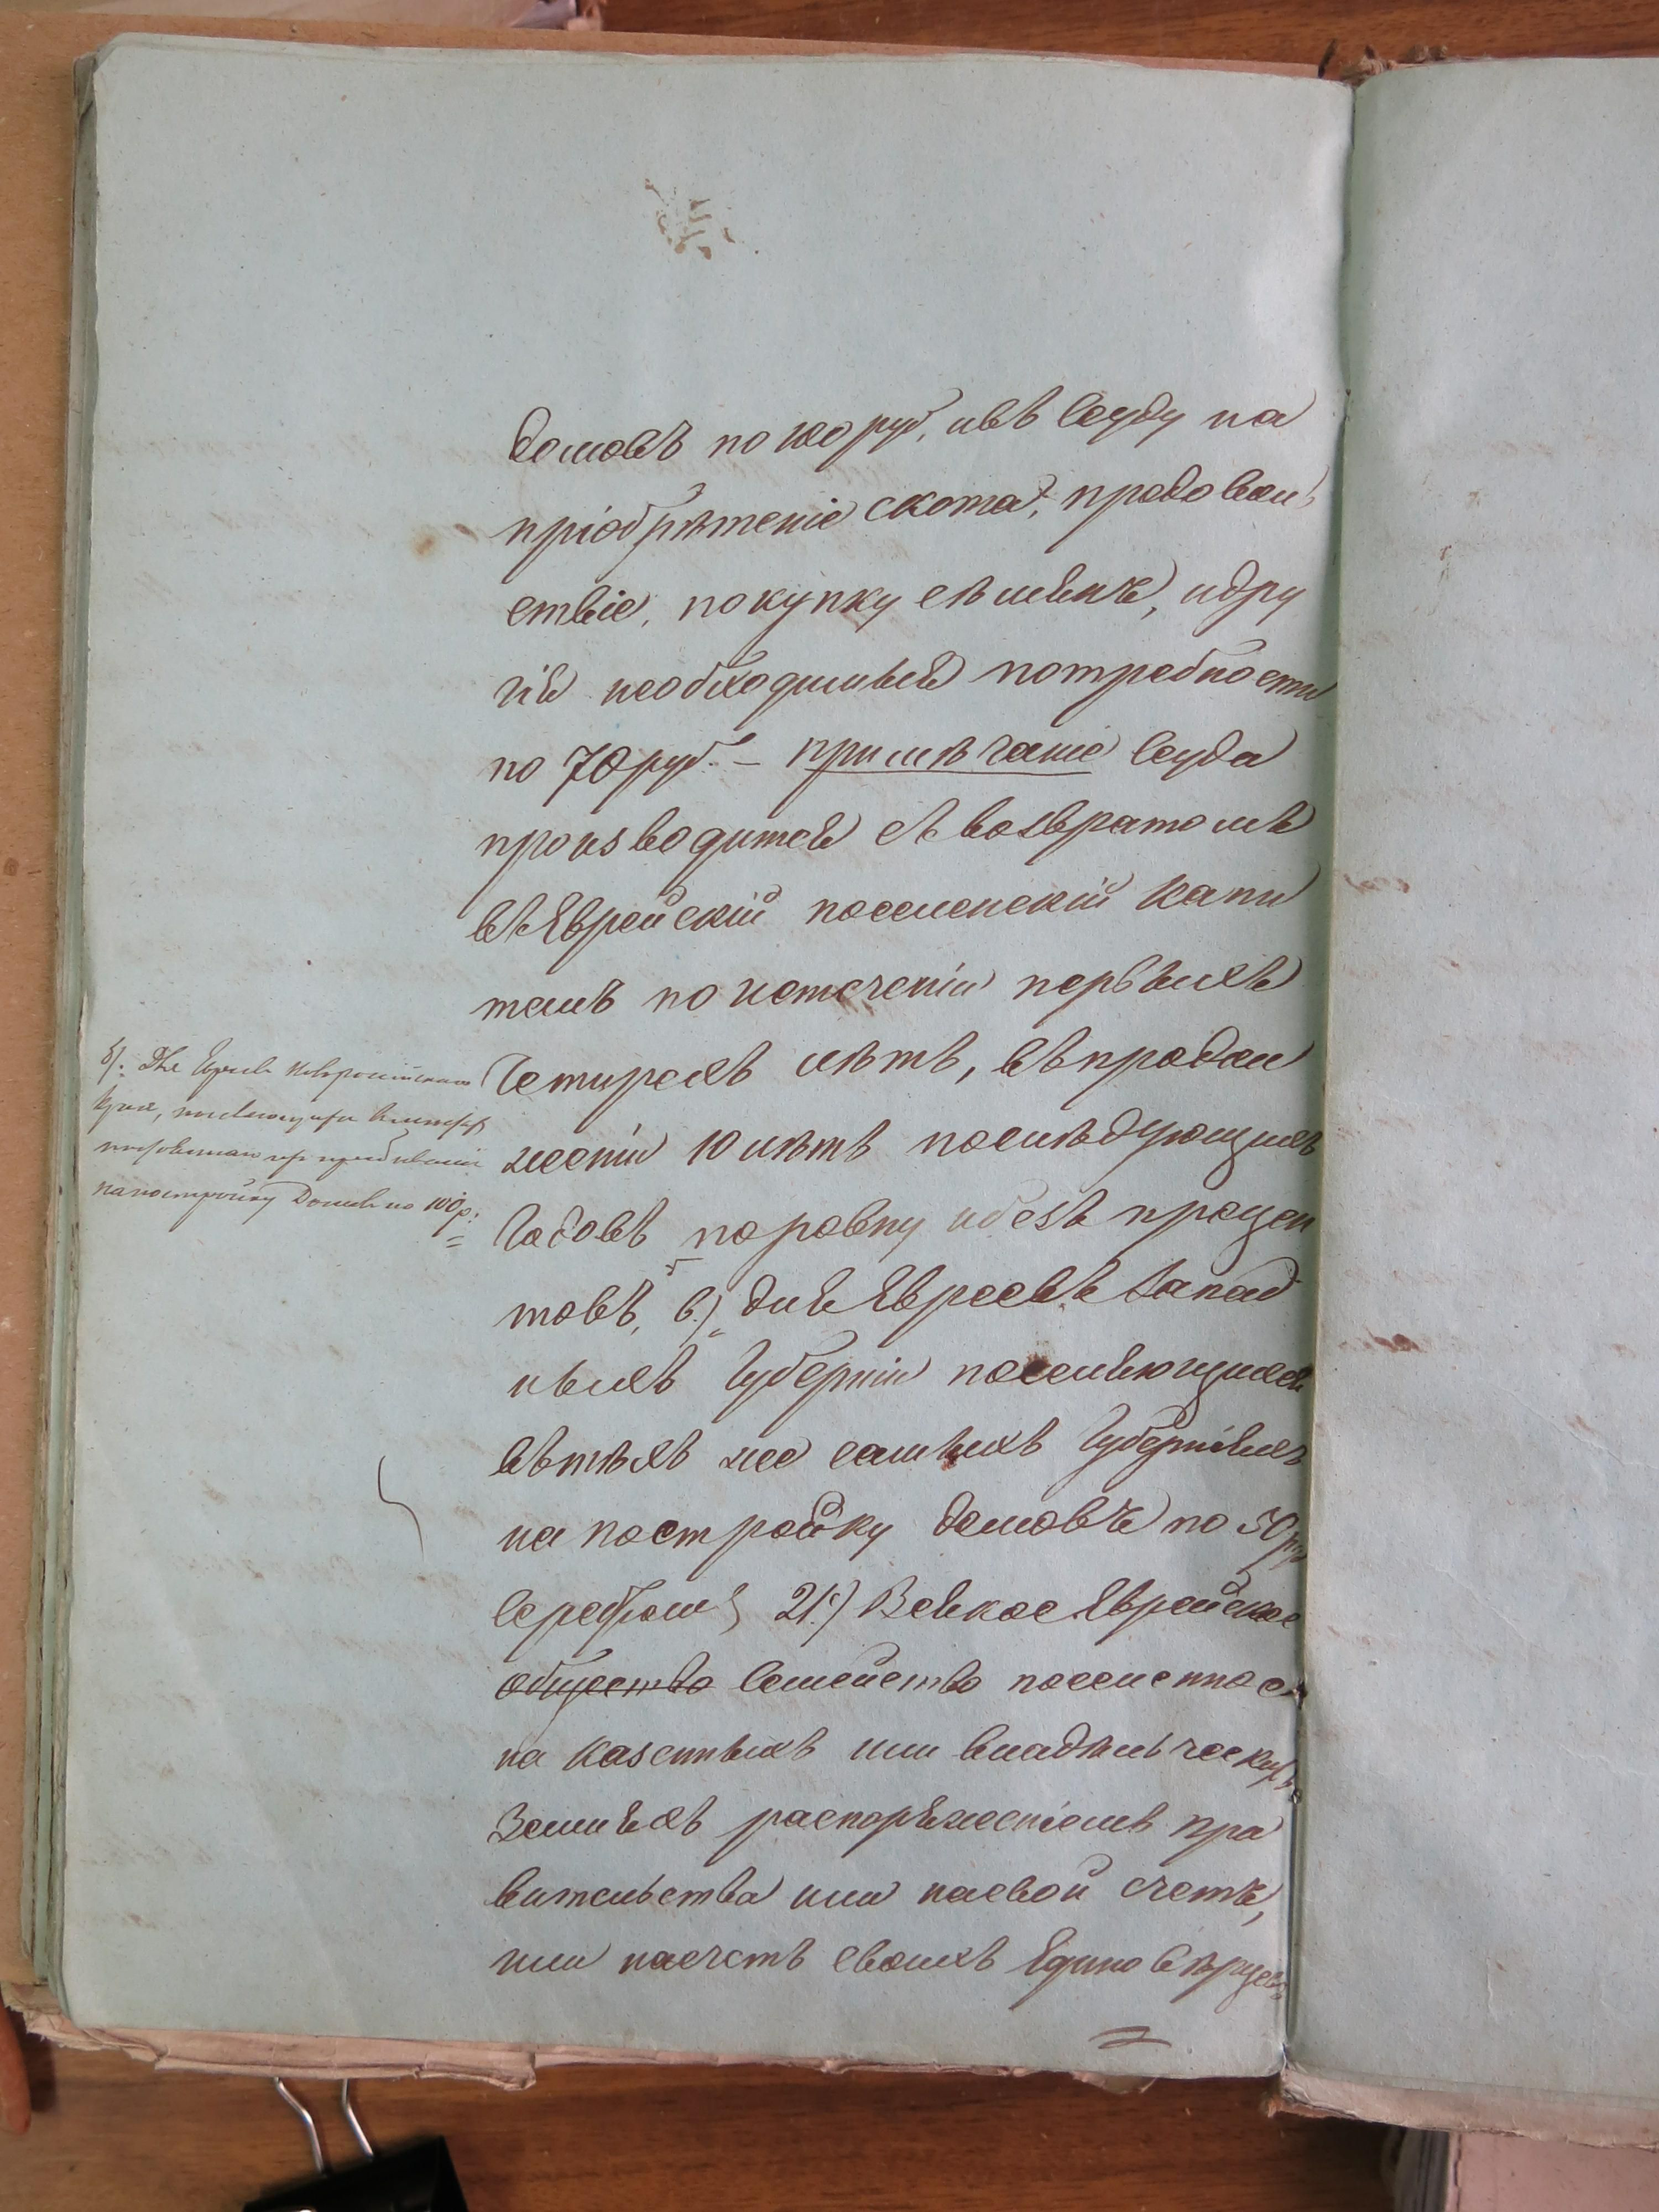 домовъ по 100 руб, и въ ссуду на
пріобрѣтеніе скота, продоволь
ствіе, покупку сѣмянъ, и дру
гія необходимыя потребности
по 70 руб. – примѣчаніе ссуда
производится съ возвратомъ
въ Еврейскій поселенскій капи
талъ по истеченіи первыхъ
четырехъ лѣтъ, въ продол
женіи 10 лѣтъ послѣдующихъ
годовъ поровну и безъ процен
товъ, в.) для Евреевъ Запад
ныхъ Губерніи поселяющихся
въ тѣхъ же самыхъ Губерніяхъ
на постройку домовъ по 50 ру
серебром; 21.) Всякое Еврейское
общество семейство поселенное
на казенныхъ или владѣльческихъ
Земляхъ распоряженіемъ пра
вительства или на свой счетъ,
или на счетъ своихъ Единовѣрцевъ,
б). Для Евреевъ Новороссійскаго
Края,
на постройку Домовъ по 100 р: